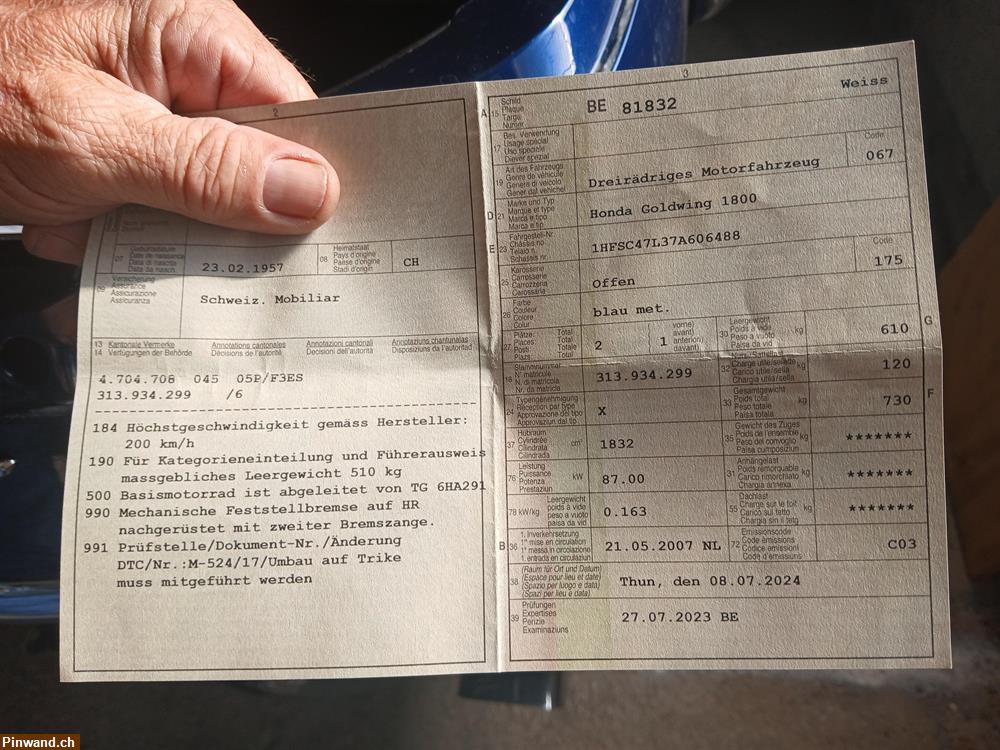 2
07 Geburtsdatum
Date de naissance
Data di nascita
Data da nasch.
23.02.1957
08 Heimatstaat
Pays d'origine
Paese d'origine
Stadi d'origin
CH
09 Versicherung
Assurance
Assicurazione
Assicuranza
Schweiz. Mobiliar
13 Kantonale Vermerke
14 Verfügungen der Behörde
Annotations cantonales
Décisions de l'autorité
Annotazioni cantonali
Decisioni dell'autorità
Annotaziuns chantunalas
Disposiziuns da l'autoritad
4.704.708 045 05P/F3ES
313.934.299 /6
184 Höchstgeschwindigkeit gemäss Hersteller:
200 km/h
190 Für Kategorieneinteilung und Führerausweis
massgebliches Leergewicht 510 kg
500 Basismotorrad ist abgeleitet von TG 6HA291
990 Mechanische Feststellbremse auf HR
nachgerüstet mit zweiter Bremszange.
991 Prüfstelle/Dokument-Nr./Änderung
DTC/Nr.:M-524/17/Umbau auf Trike
muss mitgeführt werden
3
A 15 Schild
Plaque
Targa
Numer
BE 81832
Weiss
17 Bes. Verwendung
Usage spécial
Uso speciale
Diever spezial
19 Art des Fahrzeugs
Genre de véhicule
Genere di veicolo
Gener dal vehichel
Dreirädriges Motorfahrzeug
Code
067
D 21 Marke und Typ
Marque et type
Marca e tipo
Marca e tip
Honda Goldwing 1800
E 23 Fahrgestell-Nr.
Châssis no
Telaio n.
Schassis nr.
1HFSC47L37A606488
25 Karosserie
Carrosserie
Carrozzeria
Carossaria
Offen
Code
175
26 Farbe
Couleur
Colore
Colur
blau met.
27 Plätze: Total
Places: Total
Posti: Totale
Plazs: Total
2
1
vorne)
avant)
anteriori)
davant)
30 Leergewicht
Poids à vide
Peso a vuoto
Paisa da vid
kg
610
G
18 Stammnummer
N° matricule
N. di matricola
Nr. da matricla
313.934.299
32 Nutz-/Sattellast
Charge utile/sella
Carico utile/sella
Chargia utila/sella
kg
120
24 Typengenehmigung
Réception par type
Approvazione del tipo
Approvaziun dal tip
X
33 Gesamtgewicht
Poids total
Peso totale
Paisa totala
kg
730
F
37 Hubraum
Cylindrée
Cilindrata
Cilindrada
cm³
1832
35 Gewicht des Zuges
Poids de l'ensemble
Peso del convoglio
Paisa cumposiziun
kg
*******
76 Leistung
Puissance
Potenza
Prestaziun
kW
87.00
31 Anhängelast
Poids remorquable
Carico rimorchiato
Chargia annexa
kg
*******
78 kW/kg
Leergewicht
poids à vide
peso a vuoto
paisa da vid
0.163
55 Dachlast
Charge sur le toit
Carico sul tetto
Chargia sin il tetg
kg
*******
B 36 1. Inverkehrsetzung
1re mise en circulation
1a messa in circolazione
1. entrada en circulaziun
21.05.2007 NL
72 Emissionscode
Code émissions
Codice emissioni
Code d'emissiuns
C03
38 (Raum für Ort und Datum)
(Espace pour lieu et date)
(Spazio per luogo e data)
(Spazi per lieu e data)
Thun, den 08.07.2024
39 Prüfungen
Expertises
Perizie
Examinaziuns
27.07.2023 BE
Pinwand.ch